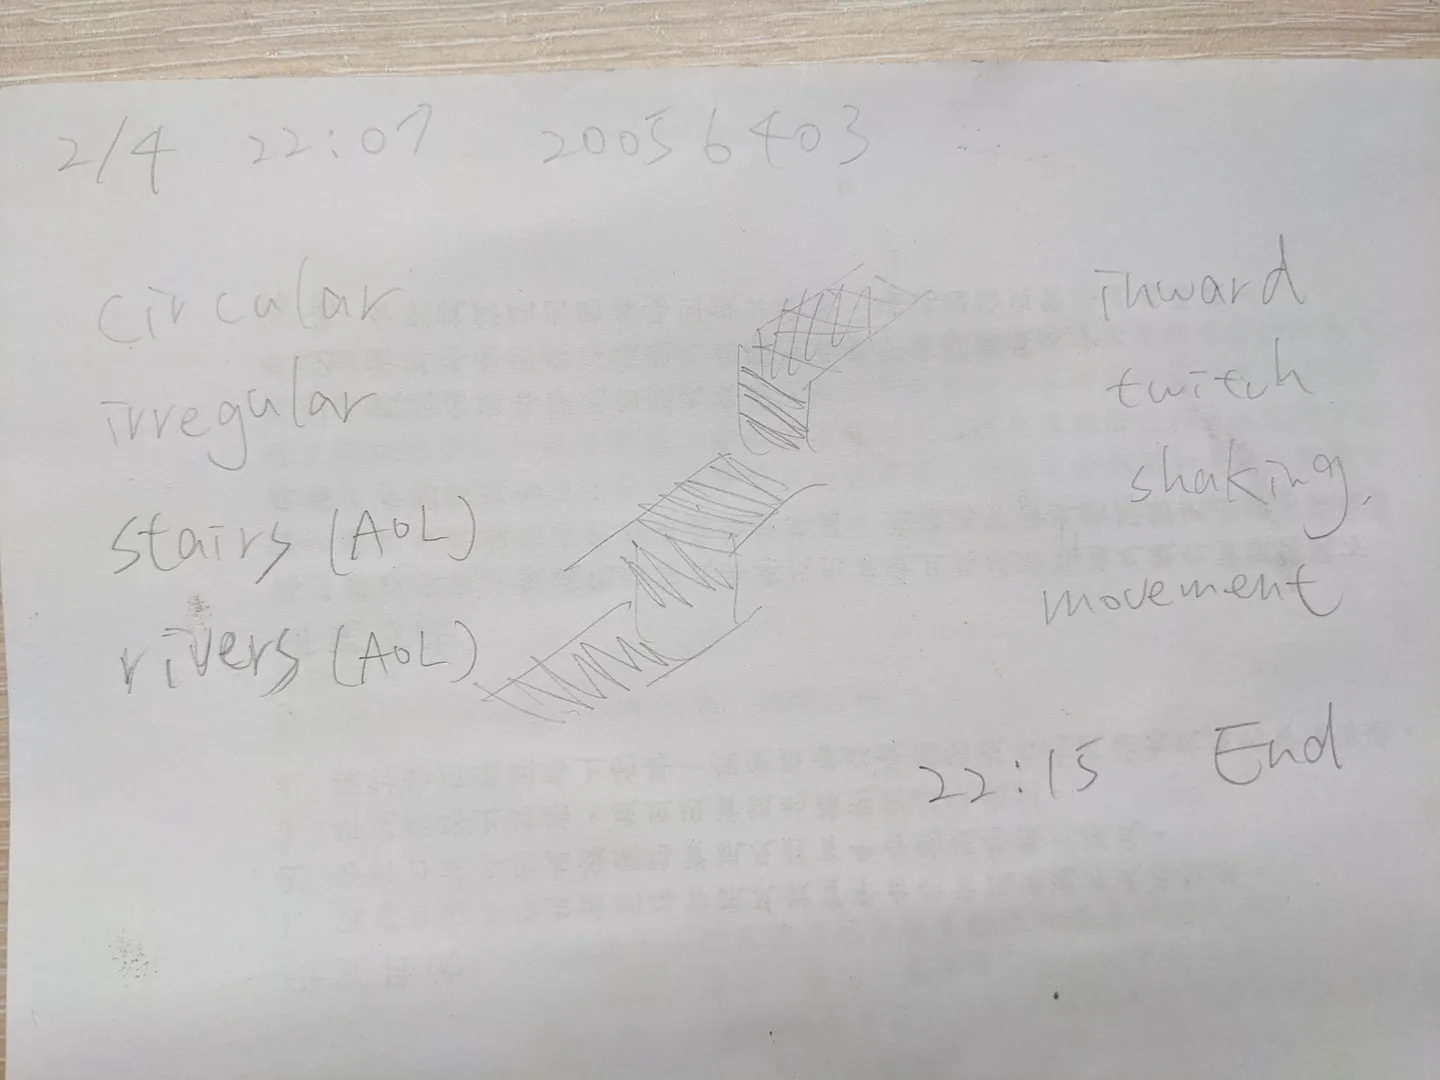 2/4 22:07 20056403
circular
irregular
stairs (AOL)
rivers (AOL)
inward
twitch
shaking,
movement
22:15 End